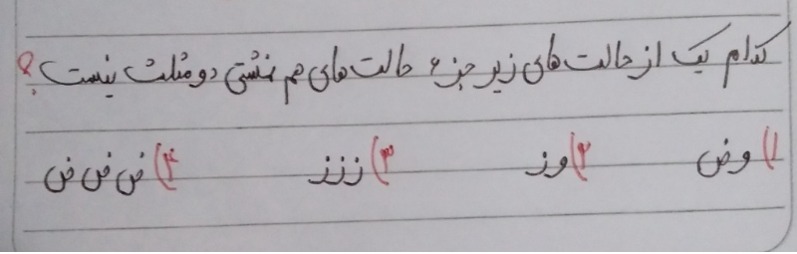 کدام یک از حالت های زیر جزء حالت های هم نهشتی دو مثلث نیست؟
۱) وض ۲) وز ۳) ززز ۴) ض ض ض